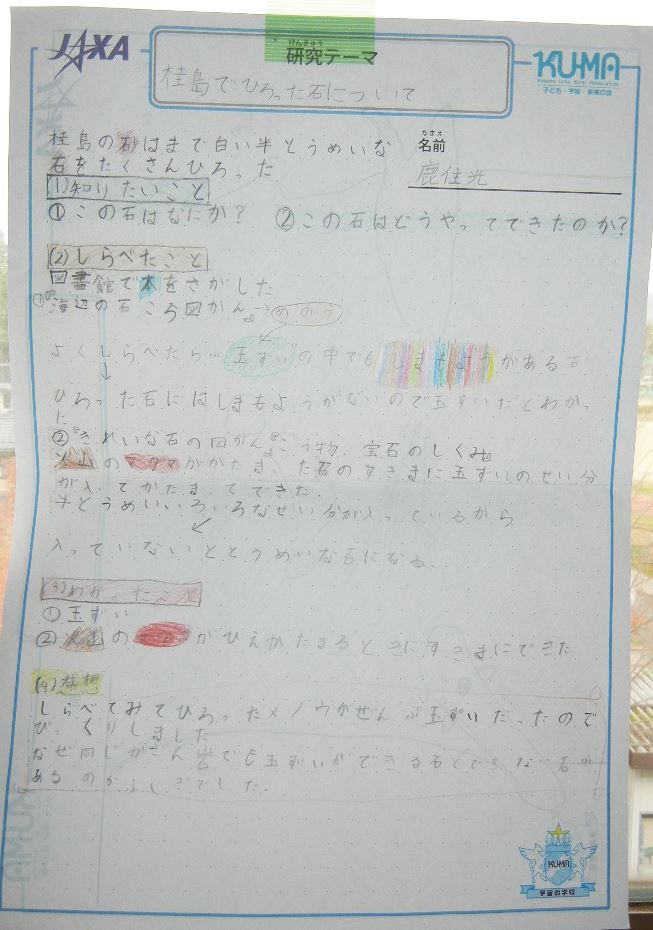 JAXA
けんきゅう
研究テーマ
桂島でひろった石について
KUMA
Kodomo Uchu Mirai Association
子ども・宇宙・未来の会
桂島の砂はまで白い半とうめいな
石をたくさんひろった
なまえ
名前
鹿住光
(1)知りたいこと
①この石はなにか? ②この石はどうやってできたのか?
(2)しらべたこと
図書館で本をさがした
海辺の石ころ図かん めのう
よくしらべたら…玉ずいの中でもしまもようがある石
↓
ひろった石にはしまもようがないので玉ずいだとわかっ
た
②『きれいな石の図かん』 『こう物、宝石のしくみ』
火山のマグマがかたまった石のすきまに玉ずいのせい分
が入ってかたまってできた.
半とうめいいろいろなせい分が入っているから
↙
入っていないととうめいな石になる.
(3)わかったこと
①玉ずい
②火山のマグマがひえかたまるときにすきまにできた
(4)感想
しらべてみてひろったメノウがぜんぶ玉ずいだったので
びっくりしました
なぜ同じがざん岩でも玉ずいができる石とできない石が
あるのかふしぎでした.
KUMA
宇宙の学校